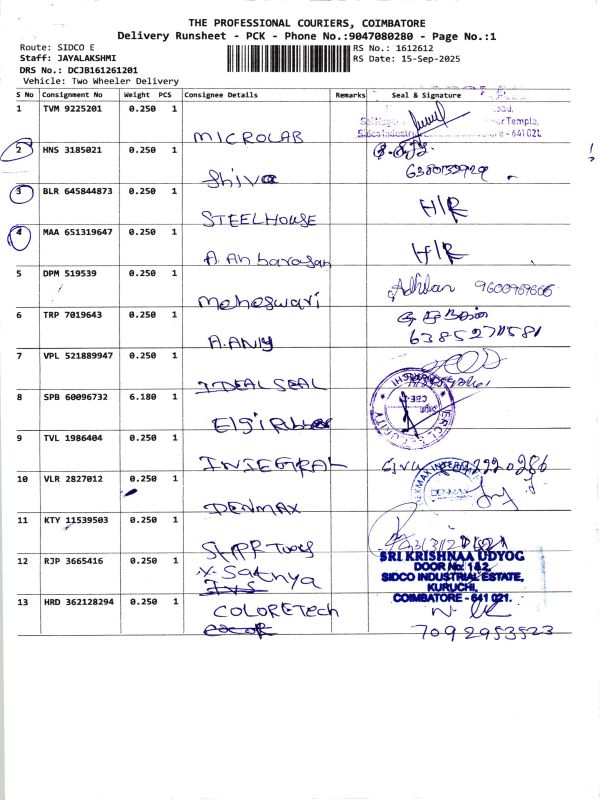 THE PROFESSIONAL COURIERS, COIMBATORE
Delivery Runsheet - PCK - Phone No.:9047080280 - Page No.:1
Route: SIDCO E
RS No.: 1612612
Staff: JAYALAKSHMI
RS Date: 15-Sep-2025
DRS No.: DCJB161261201
Vehicle: Two Wheeler Delivery
S No Consignment No Weight PCS Consignee Details Remarks Seal & Signature
1 TVM 9225201 0.250 1
MICROLAB
Temple,
- 641 021.
2 HNS 3185021 0.250 1
Shiva
3 BLR 645844873 0.250 1 H/R
STEELHOUSE
4 MAA 651319647 0.250 1 H/R
A. Anbarasan
5 DPM 519539 0.250 1
Maheswari
6 TRP 7019643 0.250 1
A. ANY
6385270581
7 VPL 521889947 0.250 1
IDEAL SEAL
8 SPB 60096732 6.180 1
Elgi Rubber
SECURITY
9 TVL 1986404 0.250 1
INTEGRAL
10 VLR 2827012 0.250 1
DENMAX
DENMAX
11 KTY 11539503 0.250 1
SHARP Tools
12 RJP 3665416 0.250 1
Y. Sathya
SRI KRISHNAA UDYOG
DOOR No: 1&2,
SIDCO INDUSTRIAL ESTATE,
KURUCHI,
COIMBATORE - 641 021.
13 HRD 362128294 0.250 1
COLORETech
7092953523